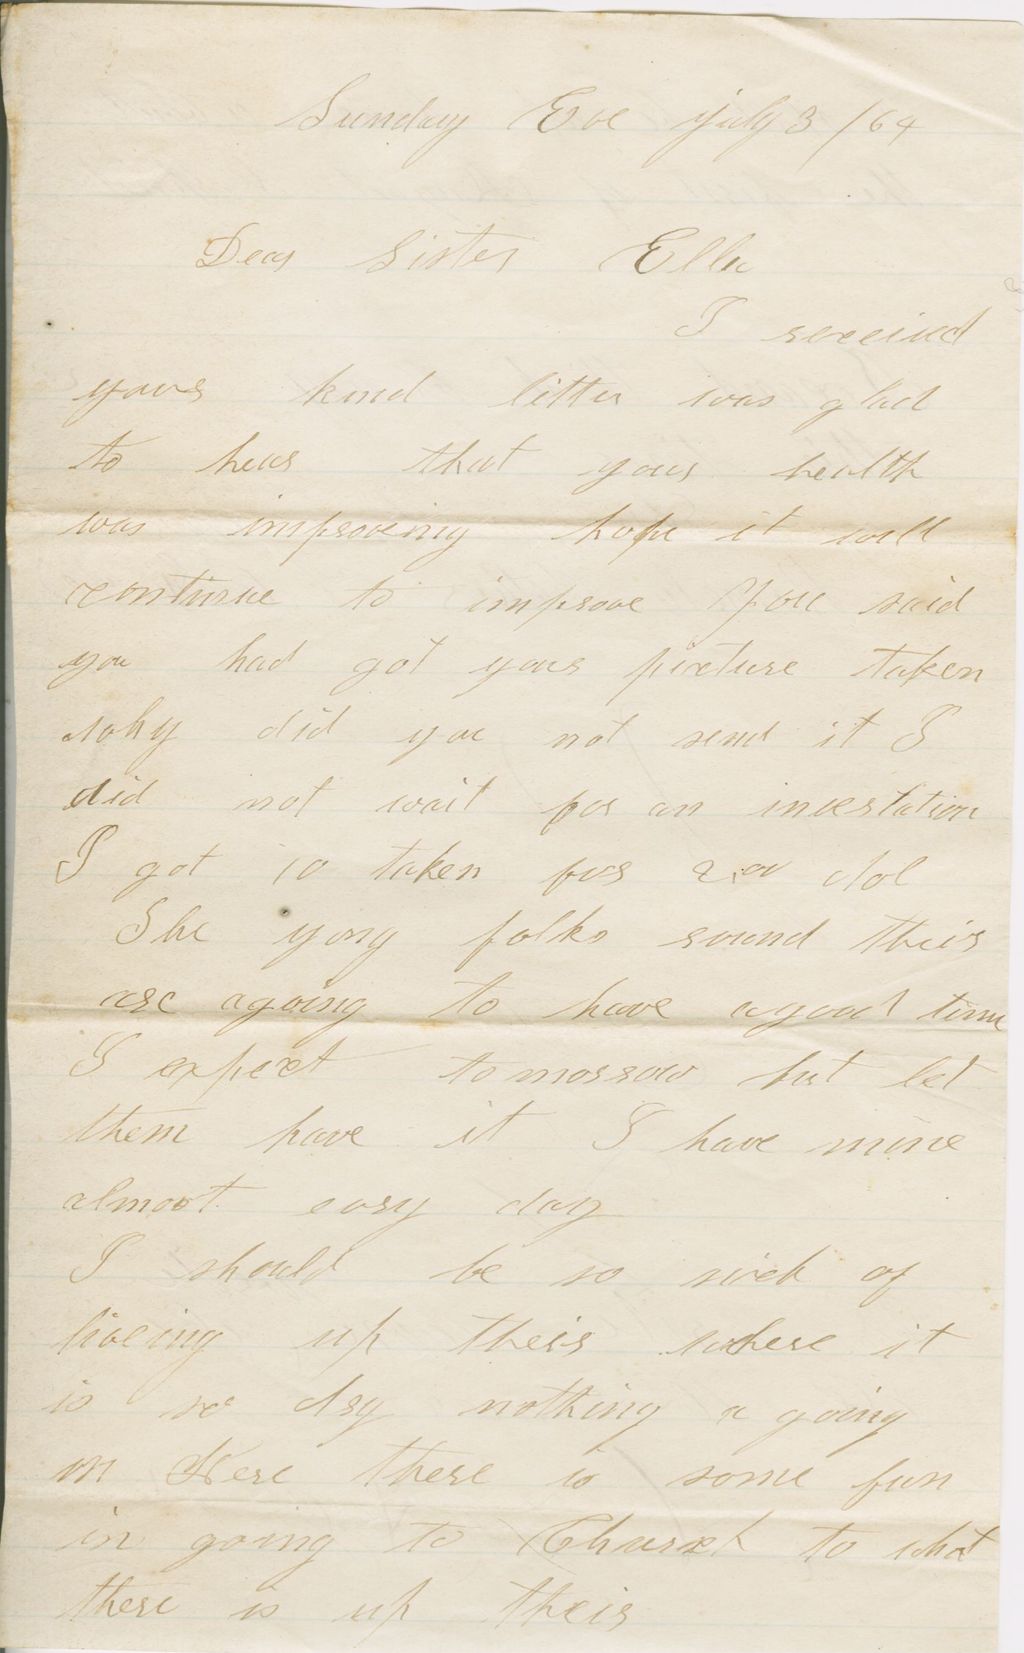 Sunday Eve July 3 /64
Dear Sister Ella
I received
your kind letter was glad
to hear that your health
was improveing hope it will
continue to improve You said
you had got your picture taken
why did you not send it I
did not wait for an
I got 10 taken for 2.00 dol
The yong folks round their
are agoing to have agood time
I expect tomorrow but let
them have it I have mine
almost evry day
I should be so sick of
liveing up their where it
is so dry nothing a going
on Here there is some fun
in going to Church to what
there is up their